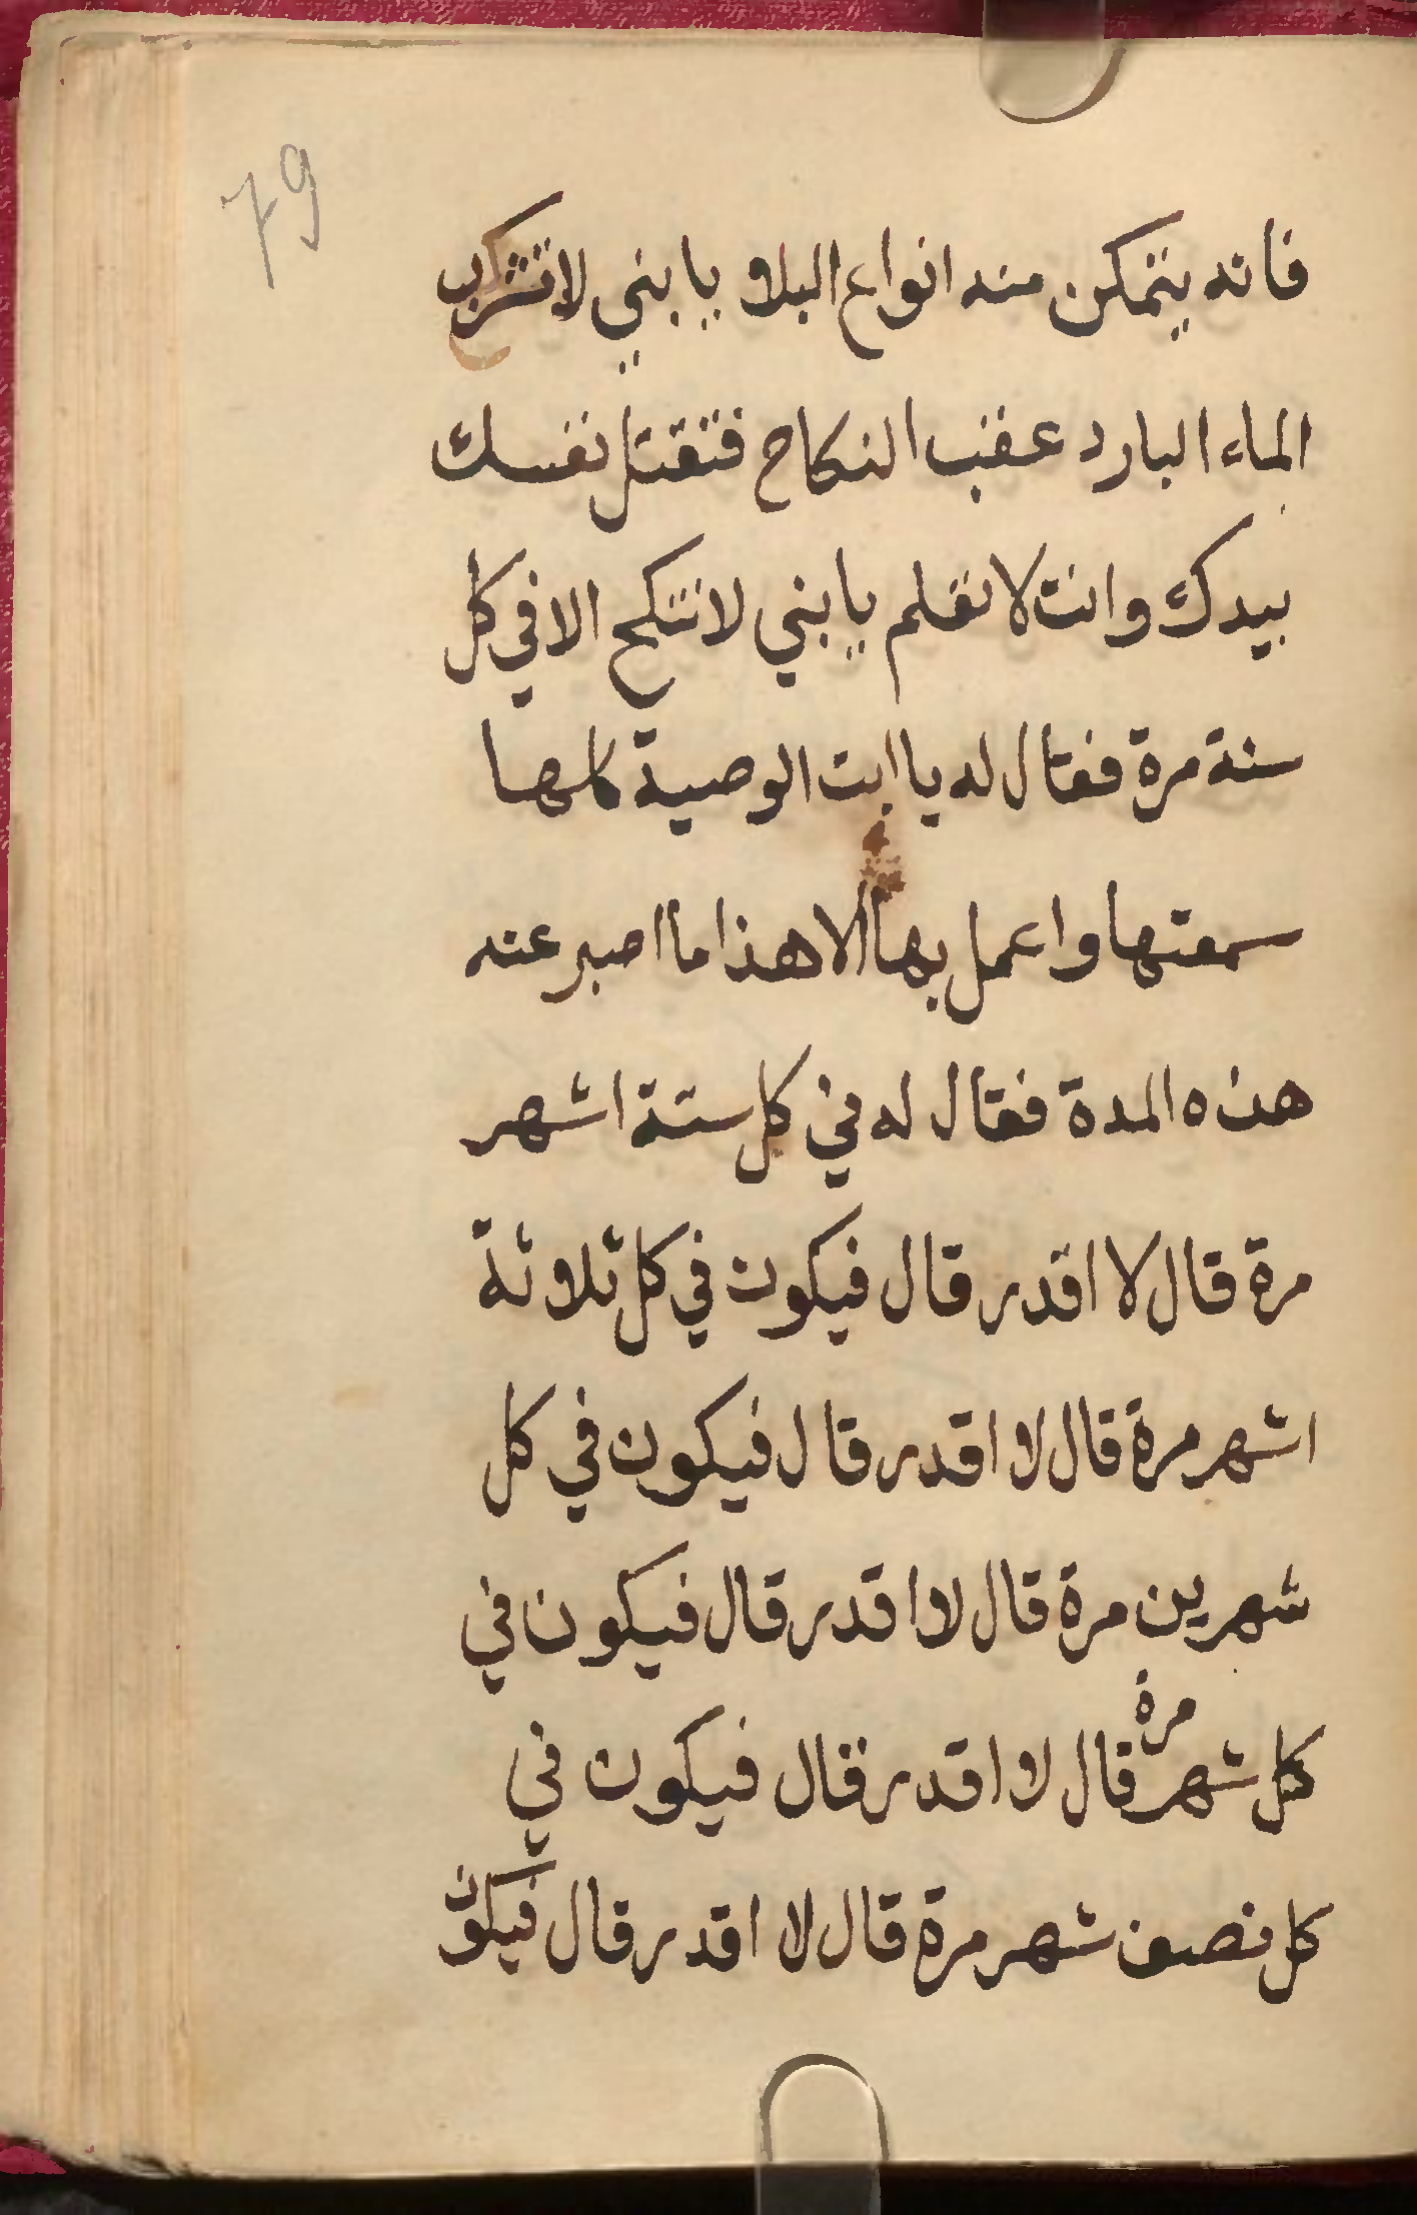 79
فانه يتمكن منه انواع البلا يا بني لا تشرب
الماء البارد عقب النكاح فتقتل نفسك
بيدك وانت لا تعلم يا بني لا تنكح الا في كل
سنة مرة فقال له يا ابت الوصية كلها
سمعتها واعمل بها الا هذا ما اصبر عنه
هذه المدة فقال له في كل ستة اشهر
مرة قال لا اقدر قال فيكون في كل ثلاثة
اشهر مرة قال لا اقدر قال فيكون في كل
شهرين مرة قال لا اقدر قال فيكون في
كل شهر مرة قال لا اقدر قال فيكون في
كل نصف شهر مرة قال لا اقدر قال فيكون